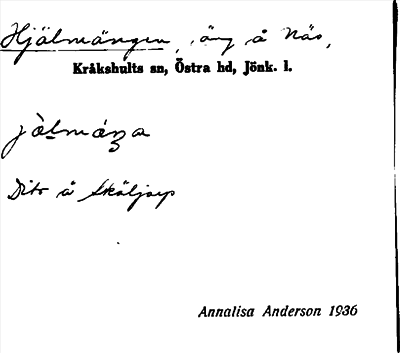 Hjälmängen, äng å Näs,
Kråkshults sn, Östra hd, Jönk. l.
Dito å Skäljarp
Annalisa Anderson 1936